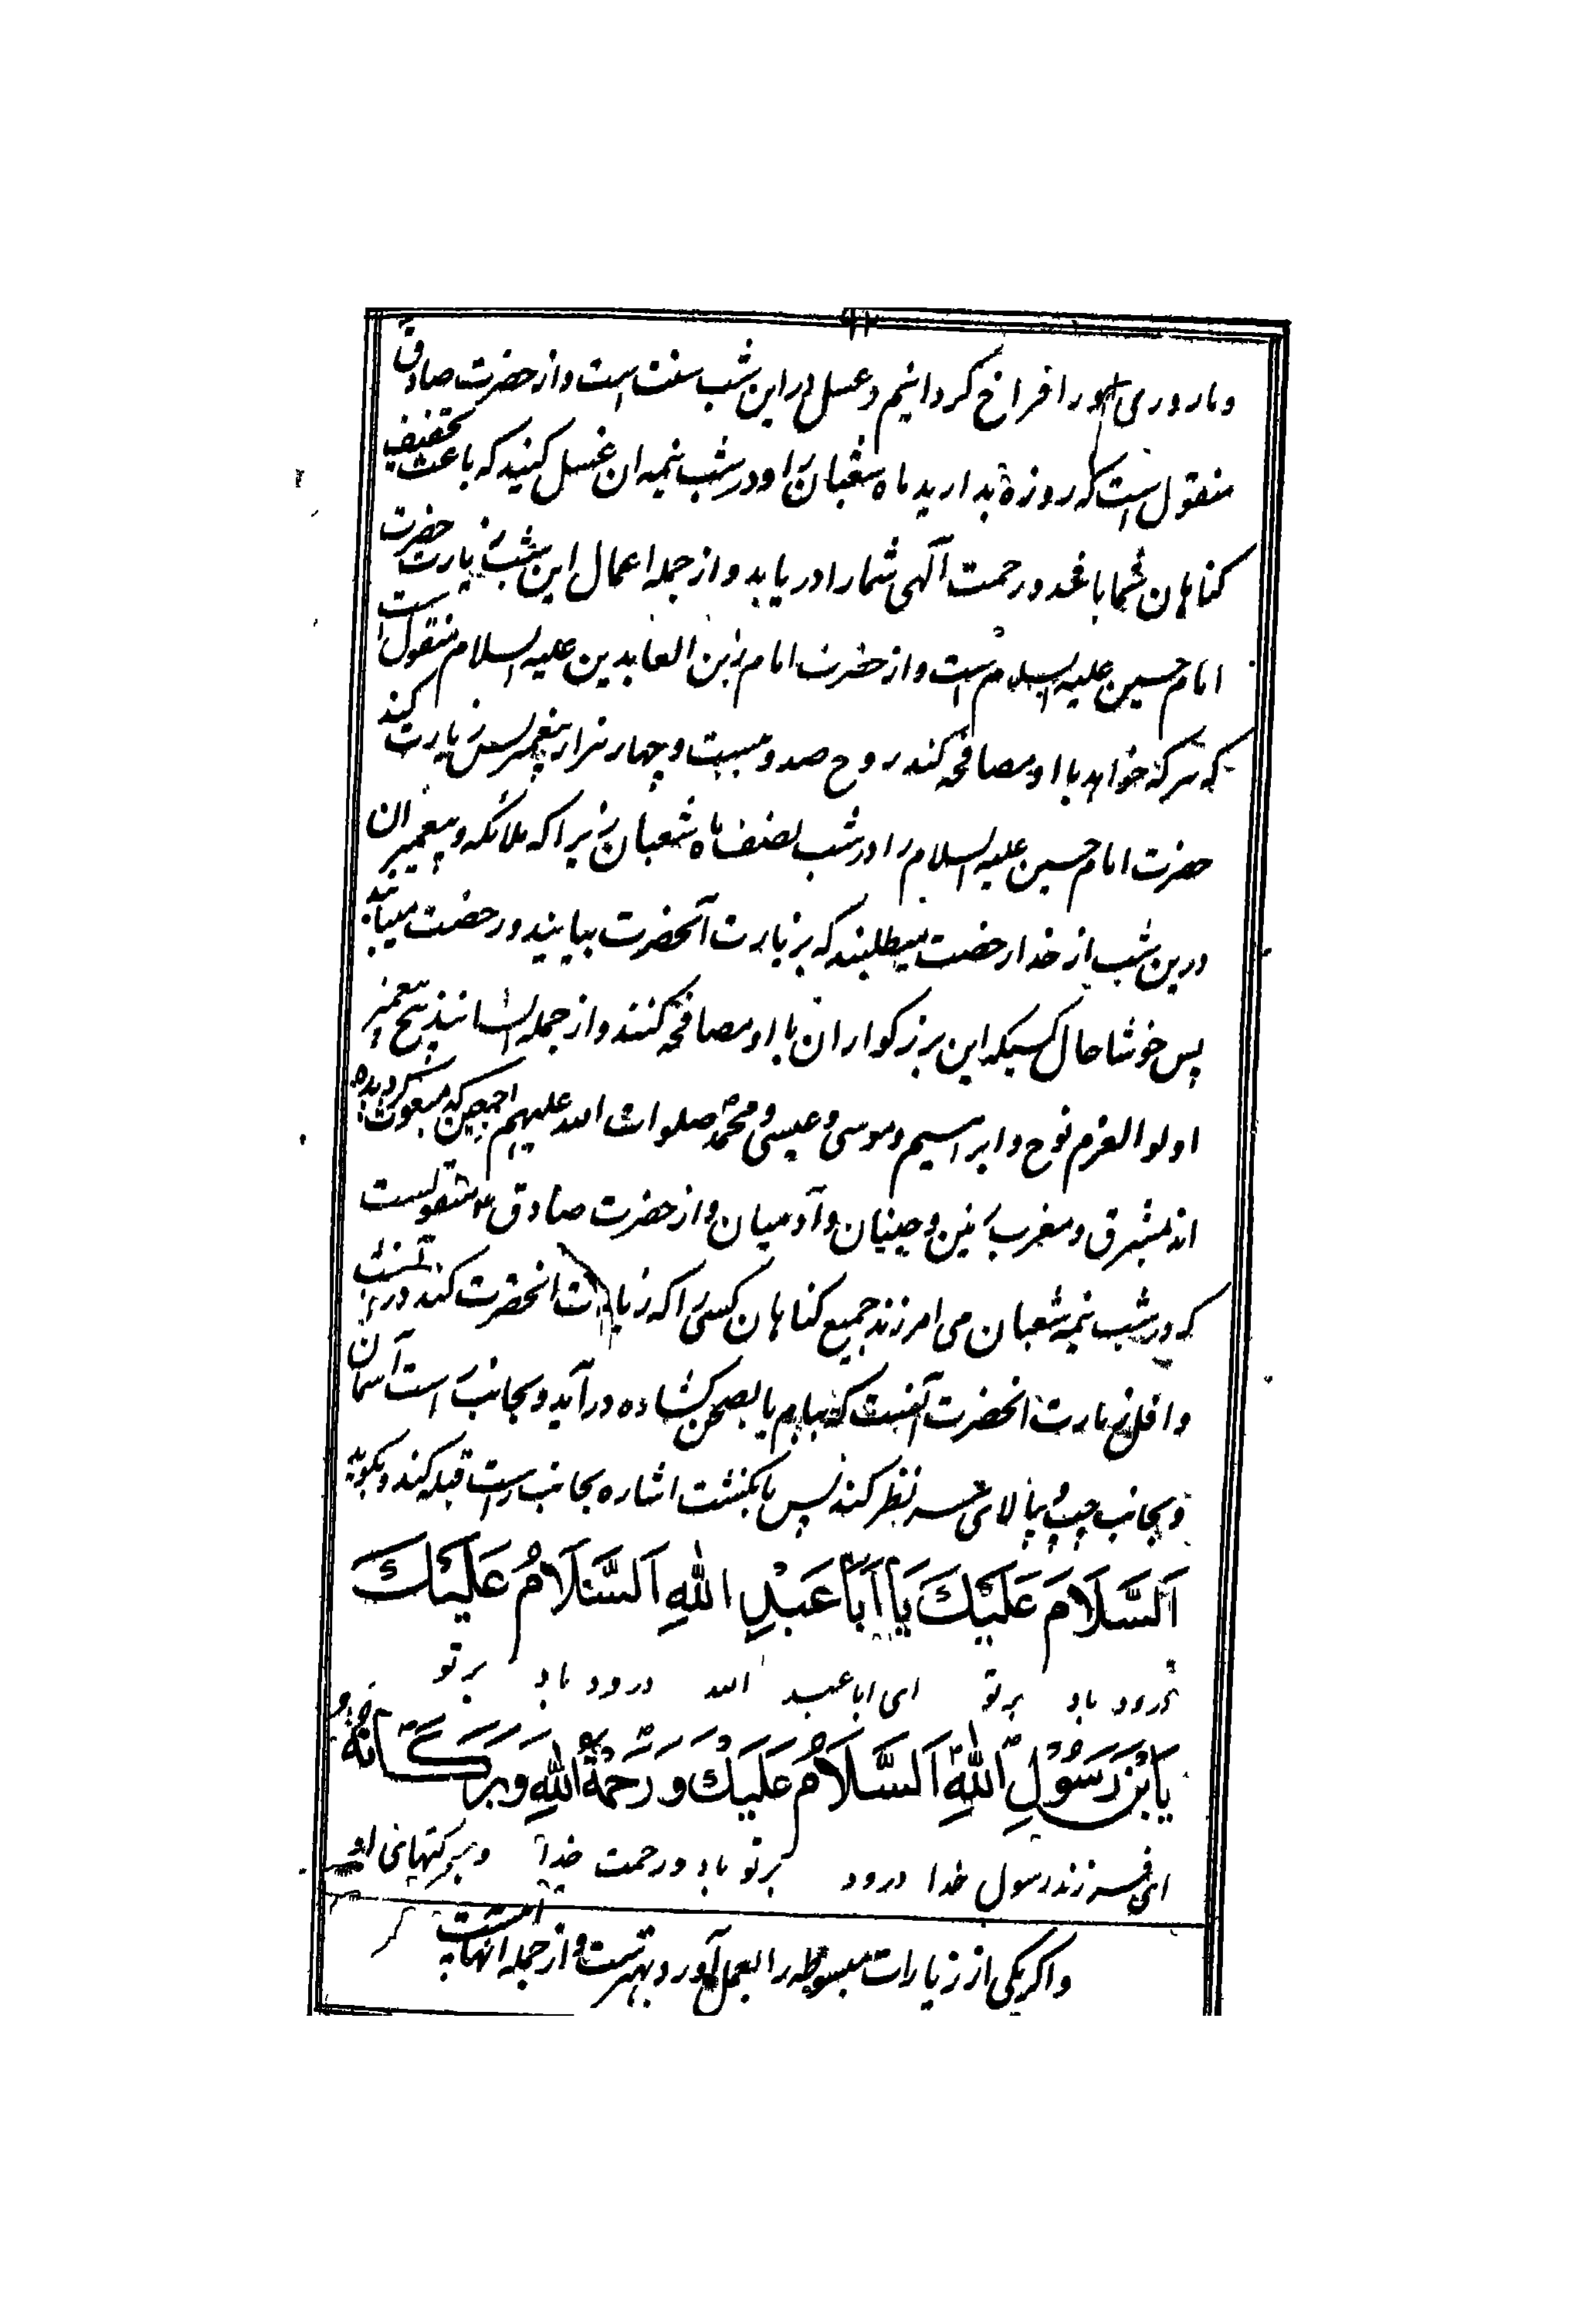 ۹۲
و ما روری او را فراخ گردانیم و غسل در این شب سنت است و از حضرت صادق
منقول است که روزه بدارید ماه شعبان را و در شب نیمه ان غسل کنید که باعث تخفیف
گناهان شما باشد و رحمت آلهی شما را در یابد و از جمله اعمال این شب زیارت حضرت
امام حسین علیه السلام است و از حضرت امام زین العابدین علیه السلام منقول است
که هر که خواهد با او مصافحه کند روح صد و بیست و چهار هزار پیغمبر پس زیارت کند
حضرت امام حسین علیه السلام را در شب نصف ماه شعبان زیرا که ملائکه و پیغمبران
درین شب از خدا رخصت میطلبند که بزیارت آنحضرت بیایند و رخصت مییابند
پس خوشا حال کسیکه این بزرگواران با او مصافحه کنند و از جمله ایشانند پنج پیغمبر
اولوالعزم نوح و ابراهیم و موسی و عیسی و محمد صلوات الله علیهم اجمعین که مبعوث گردیده
اند بمشرق و مغرب زمین و جنیان و آدمیان و از حضرت صادق ع منقولست
که در شب نیمه شعبان می امرزند جمیع گناهان کسی را که زیارت انحضرت کند در
و اقل زیارت انحضرت آنست که ببام یا بصحن گشاده در آید و بجانب راست آسمان
و بجانب چپ و بالای سر نظر کند پس بانگشت اشاره بجانب راست قبله کند و بگوید
اَلسَّلَامُ عَلَيْكَ يَا اَبَا عَبْدِ اللّٰهِ اَلسَّلَامُ عَلَيْكَ
درود باد بر تو ای ابا عبد الله درود باد بر تو
يَابْنَ رَسُوْلِ اللّٰهِ اَلسَّلَامُ عَلَيْكَ وَ رَحْمَةُ اللّٰهِ وَ بَرَكَاتُهُ
ای فرزند رسول خدا درود بر تو باد و رحمت خدا و برکتهای او
و اگر یکی از زیارات مبسوطه را بعمل آورد بهتر است و از جمله آنها